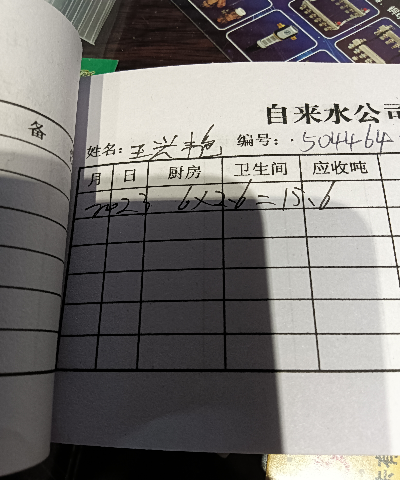 自来水公司
备
姓名: 王兴艳 编号: 504464
月 日 厨房 卫生间 应收吨
2023 6×2.6=15.6